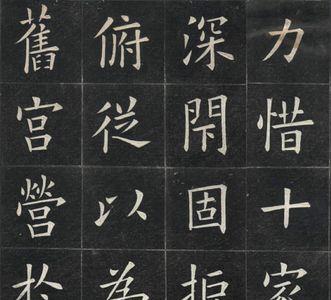 力惜十家
深閇固拒
俯從以為
舊宮營於